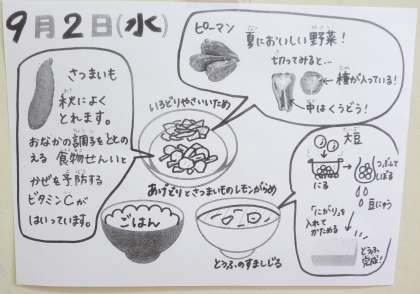 9月2日(水)
さつまいも
秋によく
とれます。
おなかの調子をととの
える 食物せんいと
かぜを予防する
ビタミンCが
はいっています。
ピーマン
夏においしい野菜!
切ってみると…
種が入っている!
中はくうどう!
いろどりやさいいため
あげどりとさつまいものレモンがらめ
ごはん
とうふのすましじる
大豆
にる
つぶして
しぼる
豆にゅう
「にがり」を
入れて
かためる
とうふ
完成!